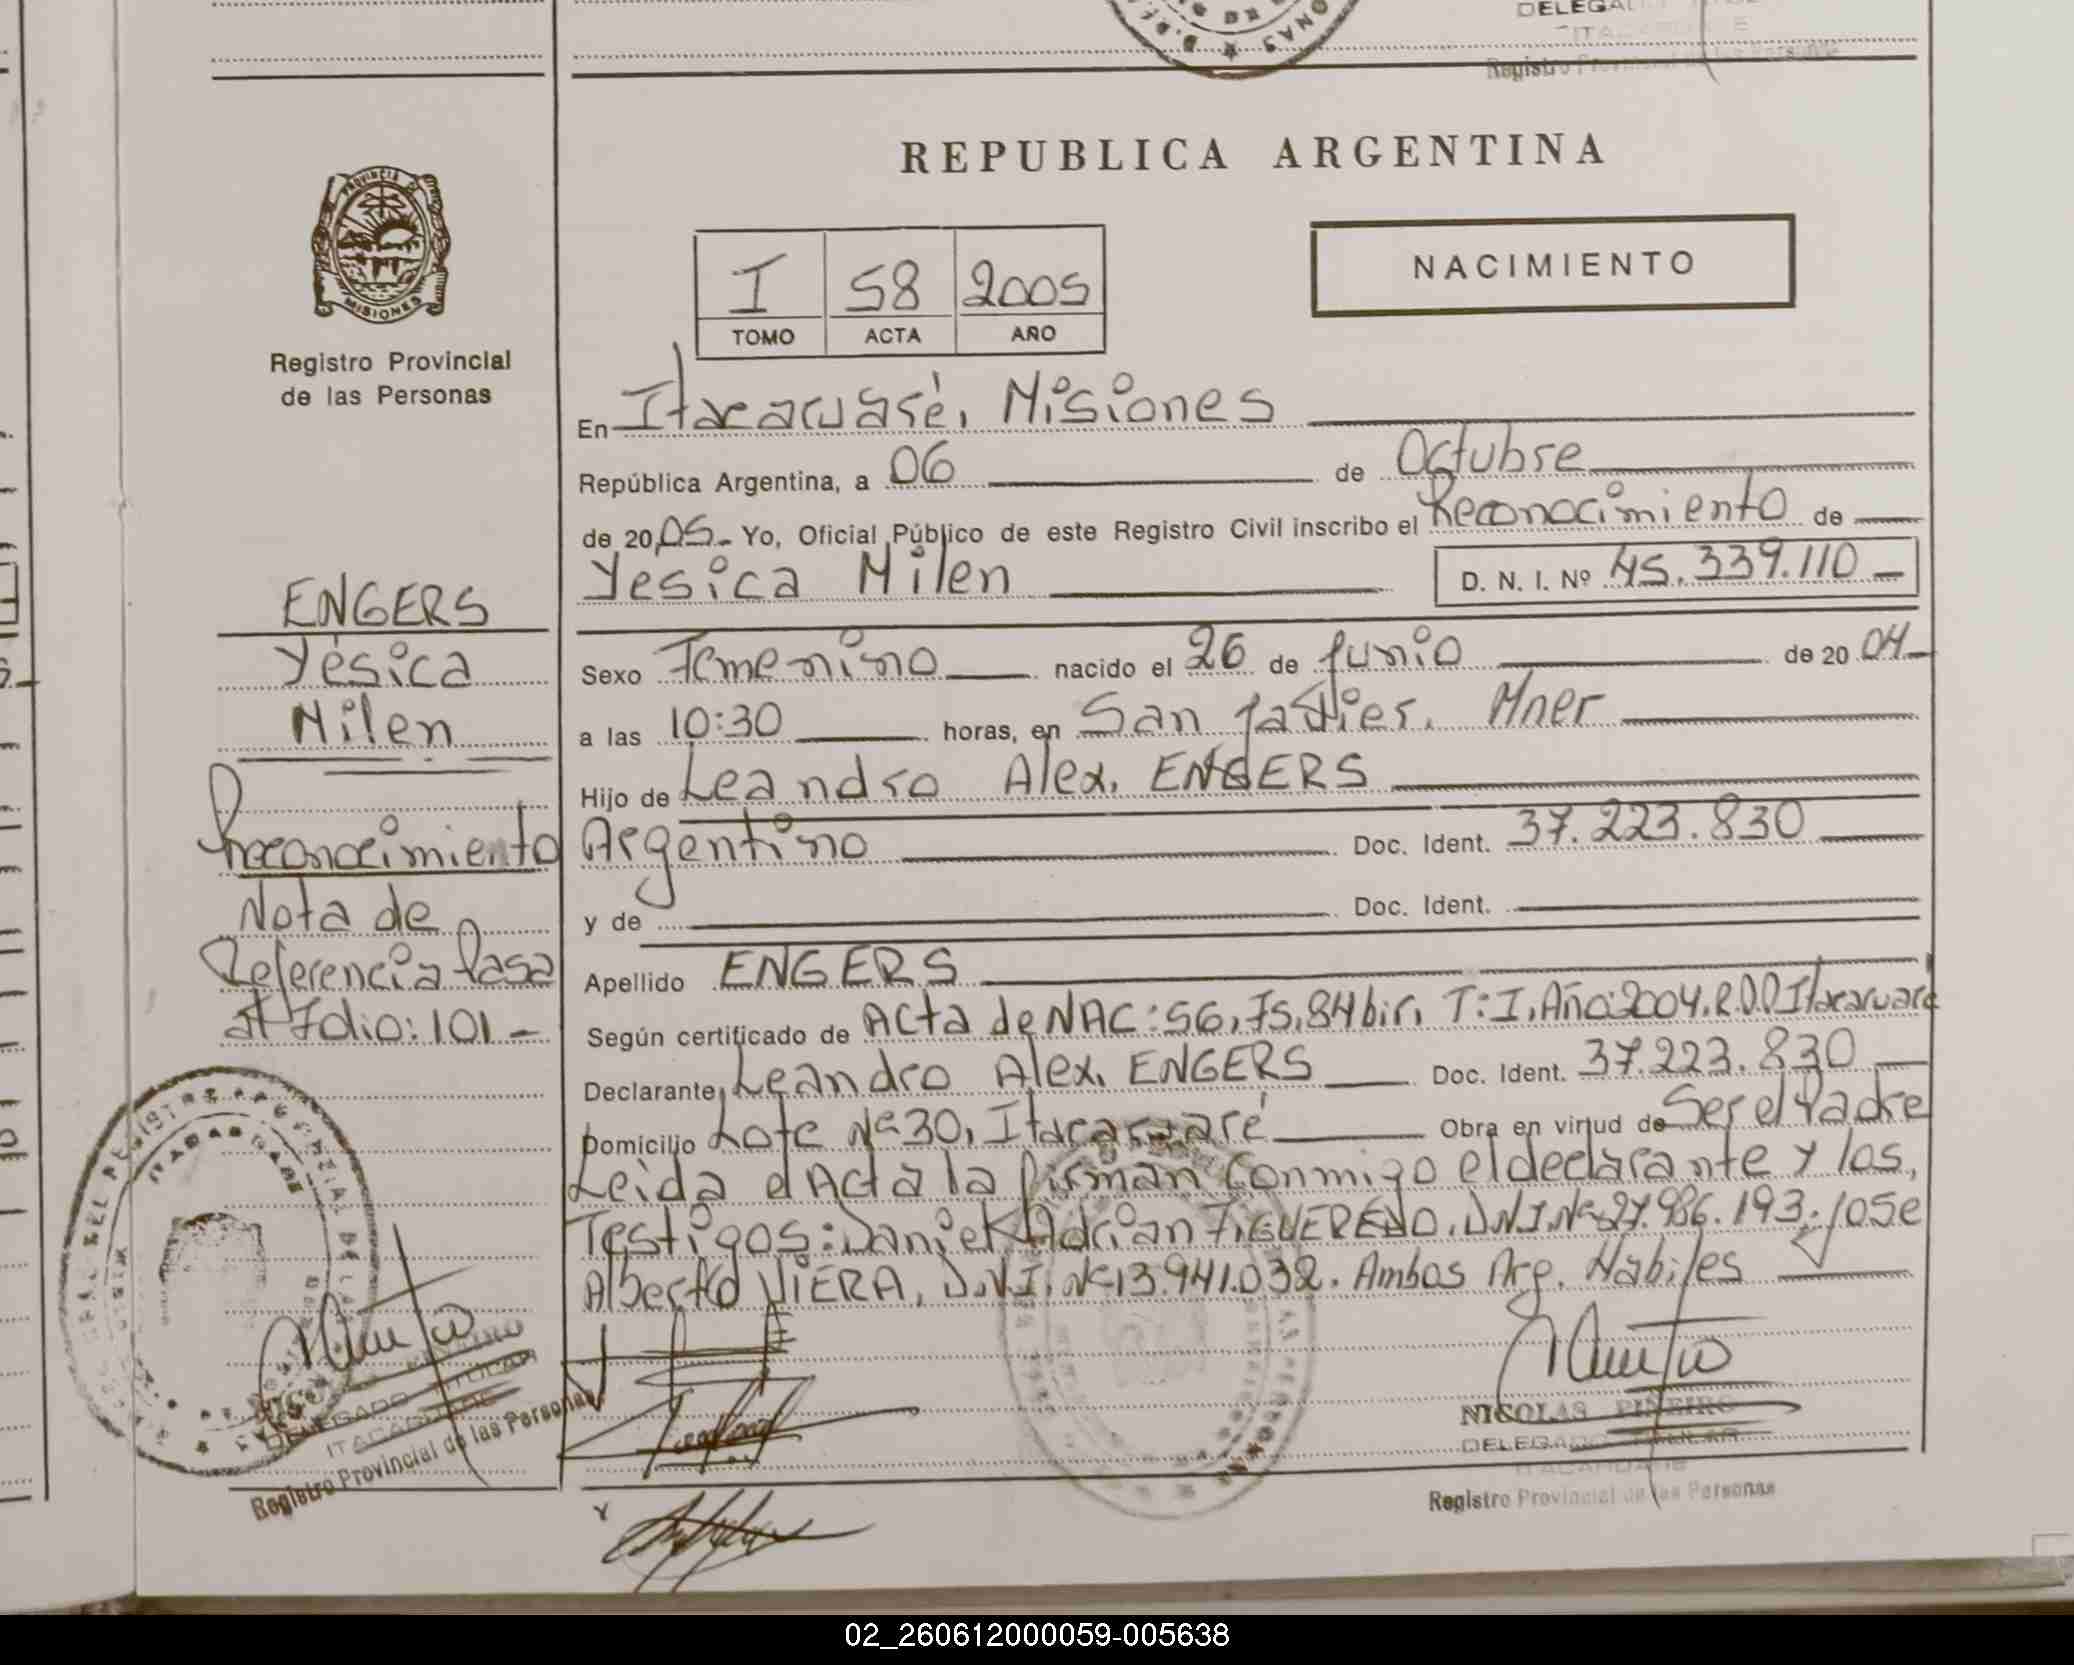 DELEGA
ITACARUARE
Registro Provincial de las Personas
REPUBLICA ARGENTINA
PROVINCIA DE
MISIONES
Registro Provincial
de las Personas
I 58 2005
TOMO ACTA AÑO
NACIMIENTO
En Itacaruaré, Misiones
República Argentina, a 06 de Octubre
de 2005.- Yo, Oficial Público de este Registro Civil inscribo el Reconocimiento de
Yesica Milen D. N. I. Nº 45.339.110
Sexo Femenino nacido el 26 de Junio de 2004
a las 10:30 horas, en San Javier. Mner
Hijo de Leandro Alex. ENGERS
Argentino Doc. Ident. 37.223.830
y de Doc. Ident.
Apellido ENGERS
Según certificado de Acta de NAC: 56, Fs. 84 bis, T: I, Año: 2004. R.P.P Itacaruaré
Declarante Leandro Alex. ENGERS Doc. Ident. 37.223.830
Domicilio Lote Nº 30, Itacaruaré Obra en virtud de Ser el Padre
Leida el Acta la firman conmigo el declarante y los,
Testigos: Daniel Adrian FIGUEREDO. DNI. Nº 27.986.193. Jose
Alberto VIERA, D.N.I. Nº 13.941.032. Ambos Arg. Habiles
ENGERS
Yésica
Milen
Reconocimiento
Nota de
Referencia Pasa
al Folio: 101 -
DELEGADO TITULAR
ITACARUARE
Registro Provincial de las Personas
NICOLAS PIÑEIRO
DELEGADO TITULAR
ITACARUARE
Registro Provincial de las Personas
02_260612000059-005638